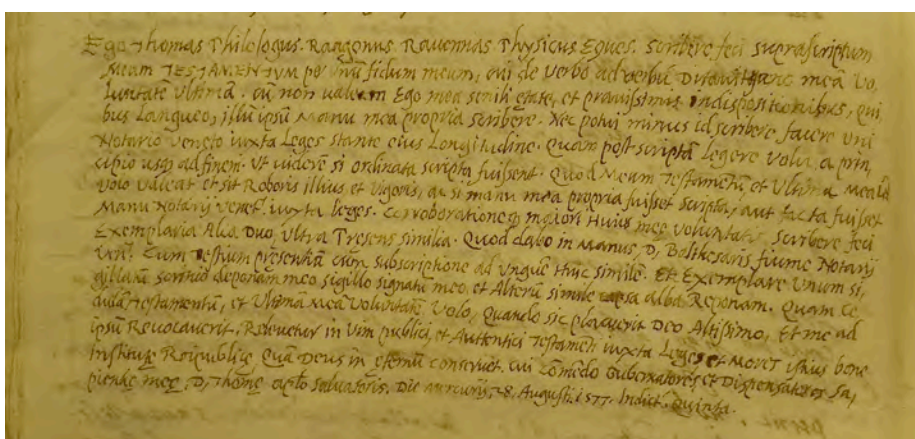 Ego Thomas Philologus. Rangonus. Ravennas. Physicus Eques. Scribere feci suprascriptum
Meum TESTAMENTUM per unū fidum meum, cui de verbo ad verbū meā Vo,
luntate Ultimā. cū non valeam Ego mea senili etate, et pravissimis indispositionibus, qui
bus Langueo, illū ipsū Manu mea propria scribere. Nec potui minus id scribere facere uni
Notario Veneto iuxta Leges stante eius Longitudine. Quam post scriptā legere volui a prin,
cipio usq ad finem. Ut videre si ordinata scripta fuissent. Quod Meum Testamentū et Ultima Mea
volo valeat et sit Roboris illius et Vigoris, ac si manu mea propria fuisset scripta, aut facta fuisset
Manu Notarij Venet. iuxta leges. Corroborationeq maiori Huius mee voluntatis scribere feci
Exemplaria Alia Duo, Ultra Presens similia. Quod dabo in Manus D, Balthesaris fiume Notarij
Ven. Cum Testium presentia cum subscriptione ad Ungue Huic simile. Et Exemplare Unum si,
gillatū deponam meo sigillo signatū meo, et Alterū simile capsa alba Reponam. Quam ce
dulā Testamentū, et Ultimā Meā Voluntatē Volo, Quando sic placuerit Deo Altissimo, Et me ad
ipsū Revocaverit, Relevetur in Vim publici, et Autentici Testamēti iuxta Leges et Mores istius bene
Institute Reipublice Quā Deus in eternū conservet. cui cōmēdo Gubernatores et Dispensatores Sa,
pientie mee, D, Thome Salvatoris. Die Mercurij, 28, Augusti. 1577. Indict. Quinta.